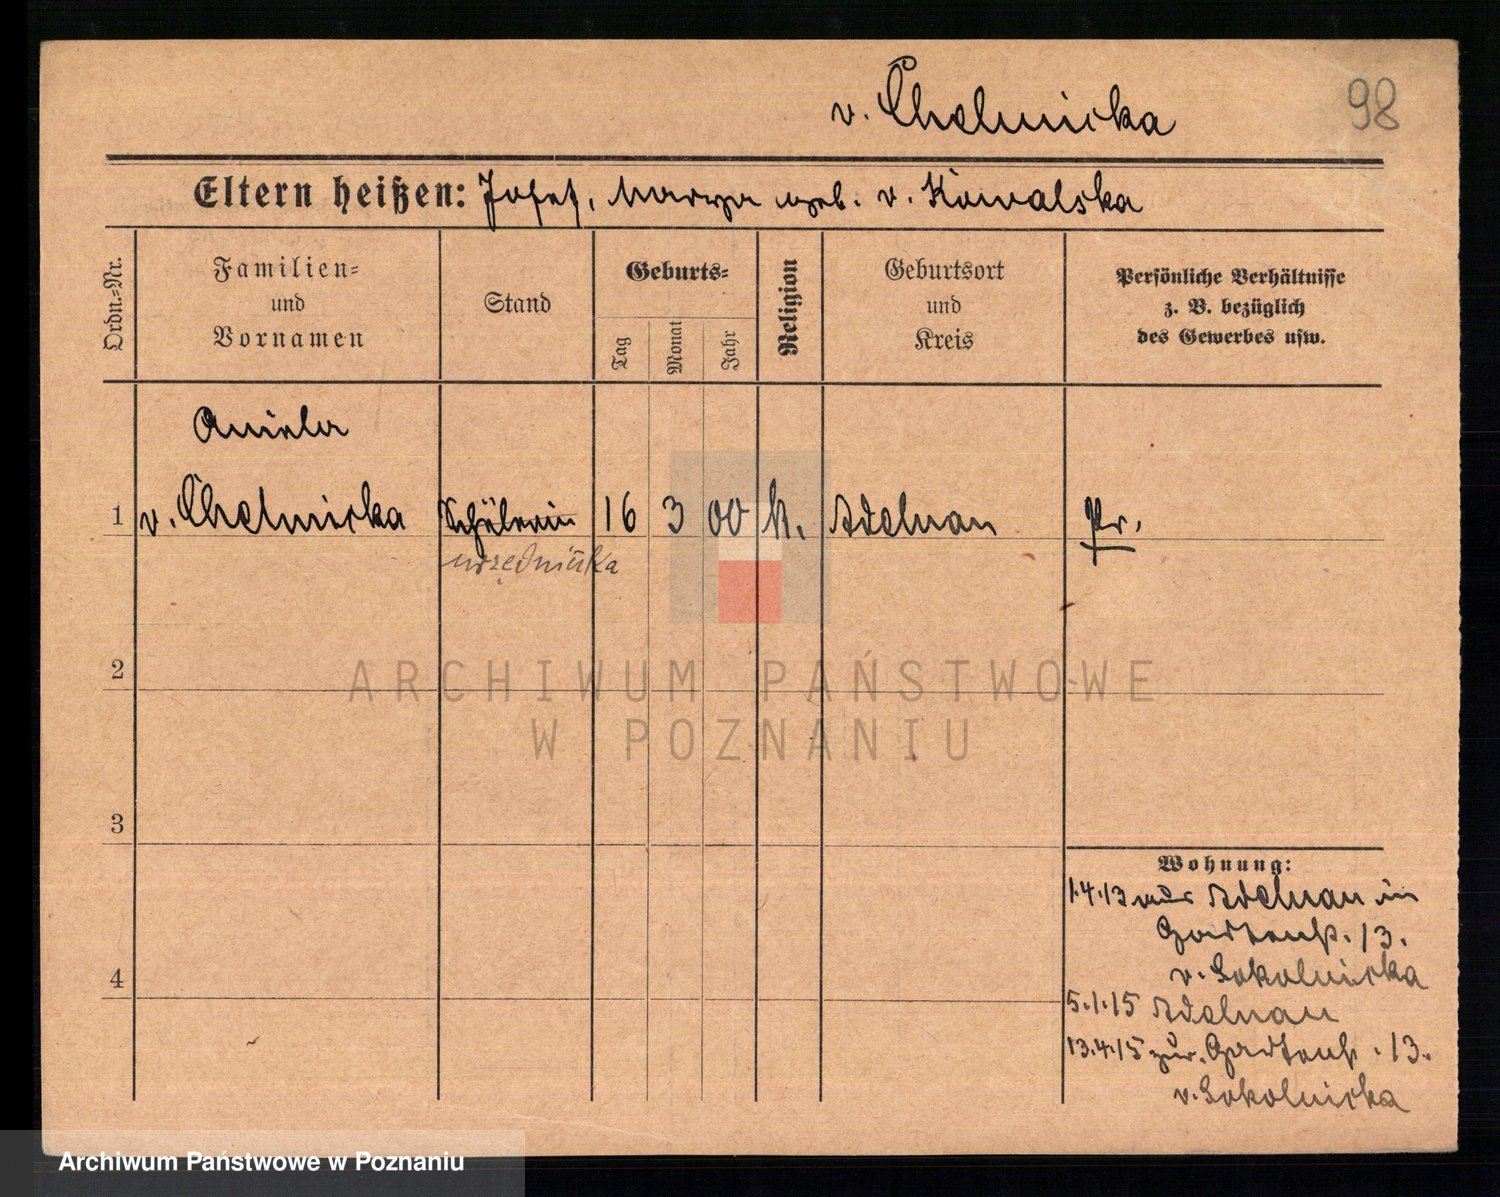 v. Chelmicka
98
Eltern heißen: Josef, Marya geb. v. Kowalska
Ordn.=Nr.
Familien=
und
Vornamen
Stand
Geburts=
Tag
Monat
Jahr
Religion
Geburtsort
und
Kreis
Persönliche Verhältnisse
z. B. bezüglich
des Gewerbes usw.
Aniela
1 v. Chelmicka Schülerin 16 3 00 k. Adelnau Pr.
urzędniczka
2
3
4
Wohnung:
1.4.13 aus Adelnau in
Gartenstr. 13.
v. Sokolnicka
5.1.15 Adelnau
13.4.15 zur. Gartenstr. 13.
v. Sokolnicka
ARCHIWUM PAŃSTWOWE
W POZNANIU
Archiwum Państwowe w Poznaniu